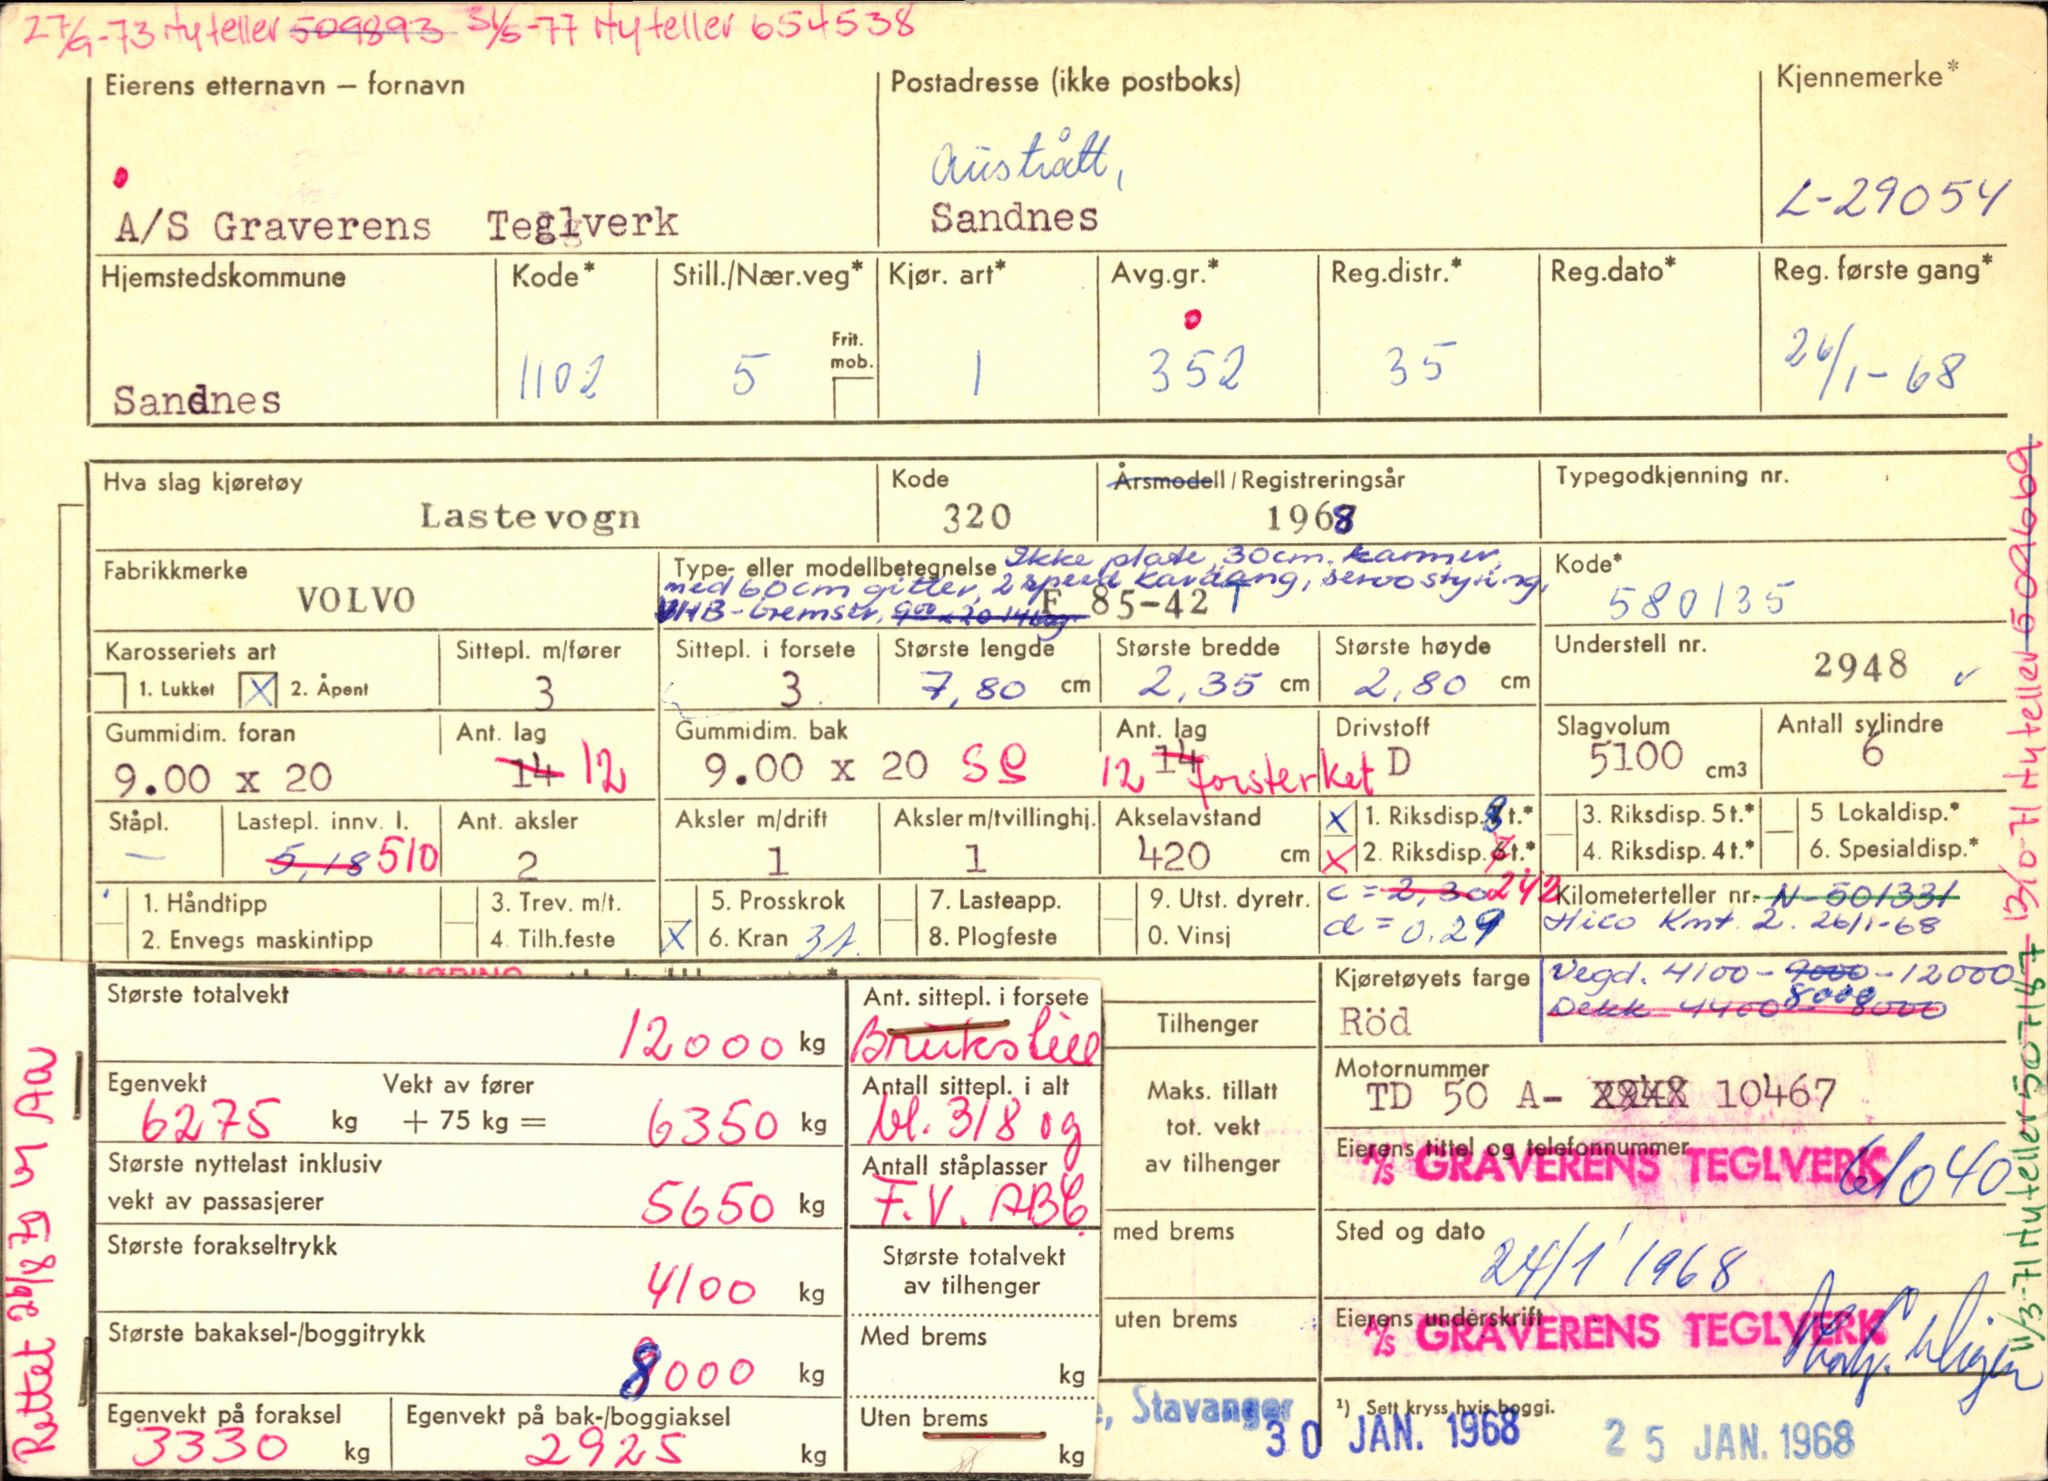 27/9-73 Ny teller 509893 31/5-77 Ny teller 654538
Eierens etternavn — fornavn
Postadresse (ikke postboks)
Kjennemerke*
Austrått,
A/S Graverens Teglverk
Sandnes
L-29054
Hjemstedskommune
Kode*
Still./Nær.veg*
Kjør. art*
Avg.gr.*
Reg.distr.*
Reg.dato*
Reg. første gang*
Frit. mob.
Sandnes
1102
5
1
352
35
26/1-68
Hva slag kjøretøy
Kode
Årsmodell/Registreringsår
Typegodkjenning nr.
Lastevogn
320
1968
Fabrikkmerke
VOLVO
Type- eller modellbetegnelse Ikke plate, 30cm. karmer,
med 60cm gitter, 2 speed kardang, servostyring,
HB-bremser,
F 85-42 T
Kode*
580135
Karosseriets art
1. Lukket X 2. Åpent
Sittepl. m/fører
3
Sittepl. i forsete
3
Største lengde
7,80 cm
Største bredde
2,35 cm
Største høyde
2,80 cm
Understell nr.
2948
Gummidim. foran
9.00 x 20
Ant. lag
14 12
Gummidim. bak
9.00 x 20 SP
Ant. lag
12 14 forsterket
Drivstoff
D
Slagvolum
5100 cm3
Antall sylindre
6
Ståpl.
—
Lastepl. innv. l.
5,18 510
Ant. aksler
2
Aksler m/drift
1
Aksler m/tvillinghj.
1
Akselavstand
420 cm
X 1. Riksdisp. 8 t.*
X 2. Riksdisp. 7 t.*
3. Riksdisp. 5 t.*
4. Riksdisp. 4 t.*
5 Lokaldisp.*
6. Spesialdisp.*
1. Håndtipp
2. Envegs maskintipp
3. Trev. m/t.
4. Tilh.feste
5. Prosskrok
X 6. Kran 3t.
7. Lasteapp.
8. Plogfeste
9. Utst. dyretr.
0. Vinsj
c = 2,30 242
d = 0.29
Kilometerteller nr. N-501331
Hico Kmt. 2. 26/1-68
Største totalvekt
12000 kg
Ant. sittepl. i forsete
Egenvekt
6275 kg
Vekt av fører
+ 75 kg = 6350 kg
Antall sittepl. i alt
bl. 3/8 og
Største nyttelast inklusiv
vekt av passasjerer
5650 kg
Antall ståplasser
F.V. ABC
Største forakseltrykk
4100 kg
Største totalvekt
av tilhenger
Største bakaksel-/boggitrykk
8000 kg
Med brems
kg
Egenvekt på foraksel
3330 kg
Egenvekt på bak-/boggiaksel
2925 kg
Uten brems
kg
Tilhenger
Maks. tillatt
tot. vekt
av tilhenger
med brems
uten brems
Kjøretøyets farge
Röd
Vegd. 4100-9000-12000
8000
Dekk 4400-8000
Motornummer
TD 50 A- 2948 10467
Eierens tittel og telefonnummer
A/S GRAVERENS TEGLVERK
61040
Sted og dato
24/1 1968
Eierens underskrift
A/S GRAVERENS TEGLVERK
, Stavanger
¹) Sett kryss hvis boggi.
30 JAN. 1968
25 JAN. 1968
Rettet 26/8 70
11/3-71 Ny teller 507157 13/10-71 Ny teller 509669